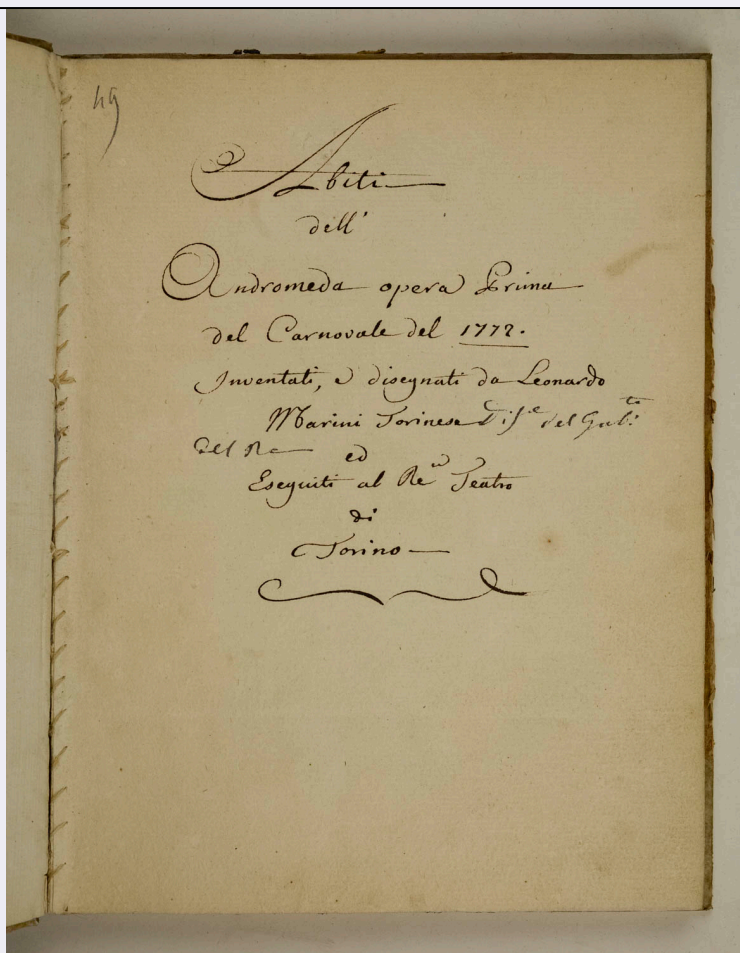 49
Abiti
dell'
Andromeda opera Prima
del Carnovale del 1772.
Inventati, e disegnati da Leonardo
Marini Torinese Dis.e del Gab.to
del Re ed
Eseguiti al Re.o Teatro
di
Torino